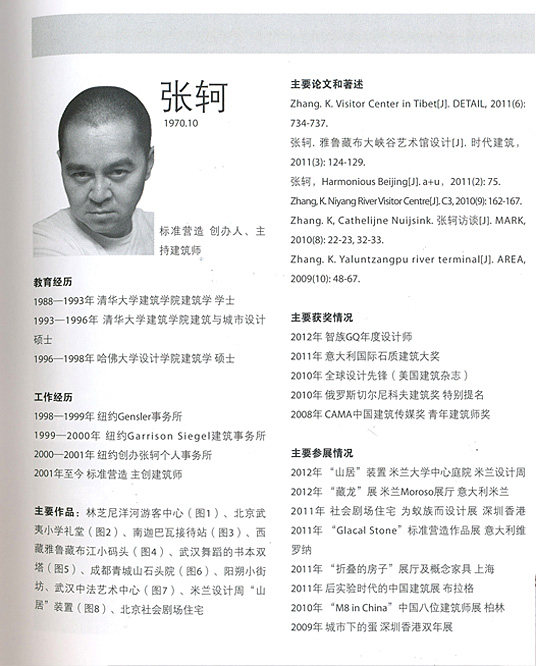 张轲
1970.10
标准营造 创办人、主
持建筑师
教育经历
1988—1993年 清华大学建筑学院建筑学 学士
1993—1996年 清华大学建筑学院建筑与城市设计
硕士
1996—1998年 哈佛大学设计学院建筑学 硕士
工作经历
1998—1999年 纽约Gensler事务所
1999—2000年 纽约Garrison Siegel建筑事务所
2000—2001年 纽约创办张轲个人事务所
2001年至今 标准营造 主创建筑师
主要作品：林芝尼洋河游客中心（图1）、北京武
夷小学礼堂（图2）、南迦巴瓦接待站（图3）、西
藏雅鲁藏布江小码头（图4）、武汉舞蹈的书本双
塔（图5）、成都青城山石头院（图6）、阳朔小街
坊、武汉中法艺术中心（图7）、米兰设计周“山
居”装置（图8）、北京社会剧场住宅
主要论文和著述
Zhang. K. Visitor Center in Tibet[J]. DETAIL, 2011(6):
734-737.
张轲. 雅鲁藏布大峡谷艺术馆设计[J]. 时代建筑，
2011(3): 124-129.
张轲，Harmonious Beijing[J]. a+u，2011(2): 75.
Zhang, K. Niyang River Visitor Centre[J]. C3, 2010(9): 162-167.
Zhang. K, Cathelijne Nuijsink. 张轲访谈[J]. MARK,
2010(8): 22-23, 32-33.
Zhang. K. Yaluntzangpu river terminal[J]. AREA,
2009(10): 48-67.
主要获奖情况
2012年 智族GQ年度设计师
2011年 意大利国际石质建筑大奖
2010年 全球设计先锋（美国建筑杂志）
2010年 俄罗斯切尔尼科夫建筑奖 特别提名
2008年 CAMA中国建筑传媒奖 青年建筑师奖
主要参展情况
2012年 “山居”装置 米兰大学中心庭院 米兰设计周
2012年 “藏龙”展 米兰Moroso展厅 意大利米兰
2011年 社会剧场住宅 为蚁族而设计展 深圳香港
2011年 “Glacal Stone”标准营造作品展 意大利维
罗纳
2011年 “折叠的房子”展厅及概念家具 上海
2011年 后实验时代的中国建筑展 布拉格
2010年 “M8 in China”中国八位建筑师展 柏林
2009年 城市下的蛋 深圳香港双年展